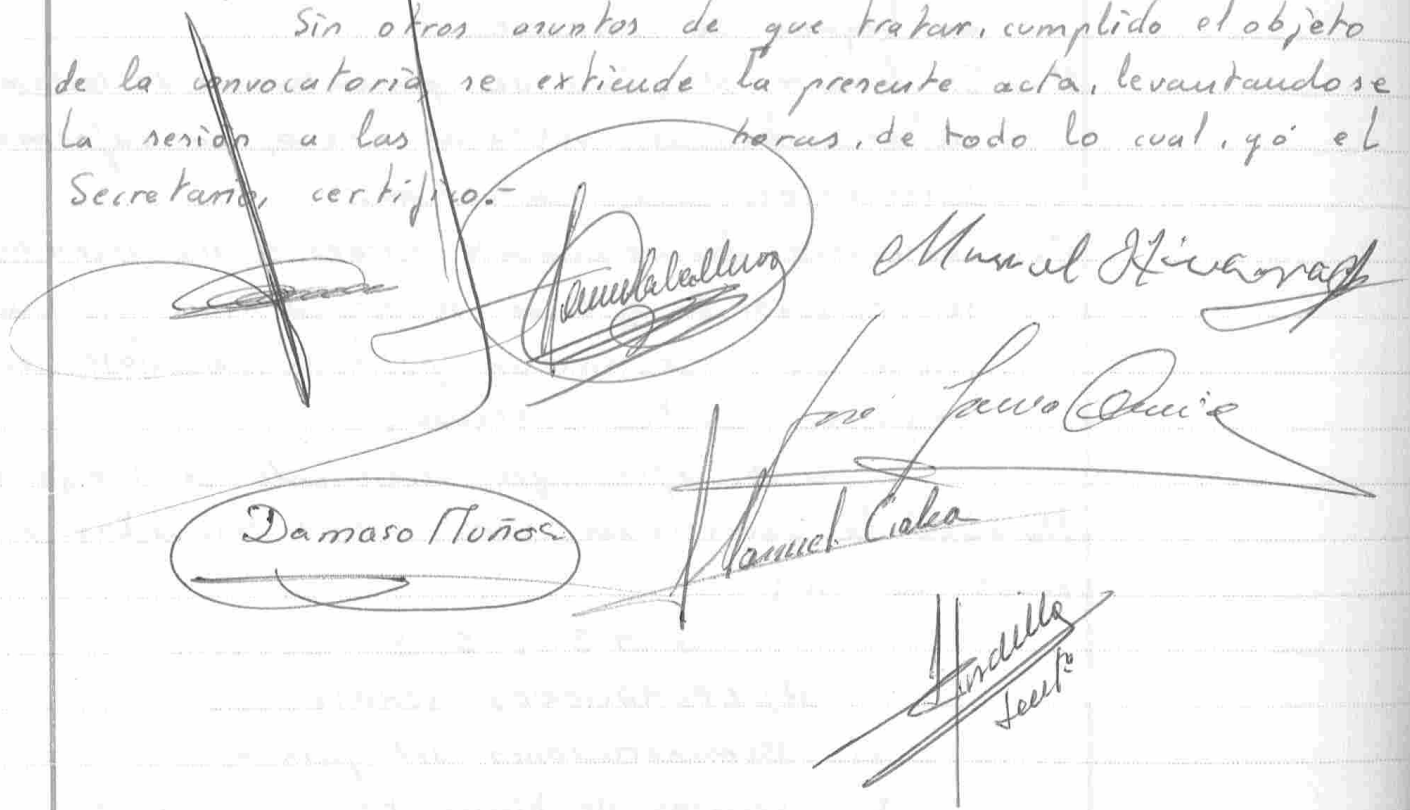 Sin otros asuntos de que tratar, cumplido el objeto
de la convocatoria, se extiende la presente acta, levantandose
la sesión a las horas, de todo lo cual, yó el
Secretario, certifico.-
Manuel
José
Manuel
Damaso Muñoz